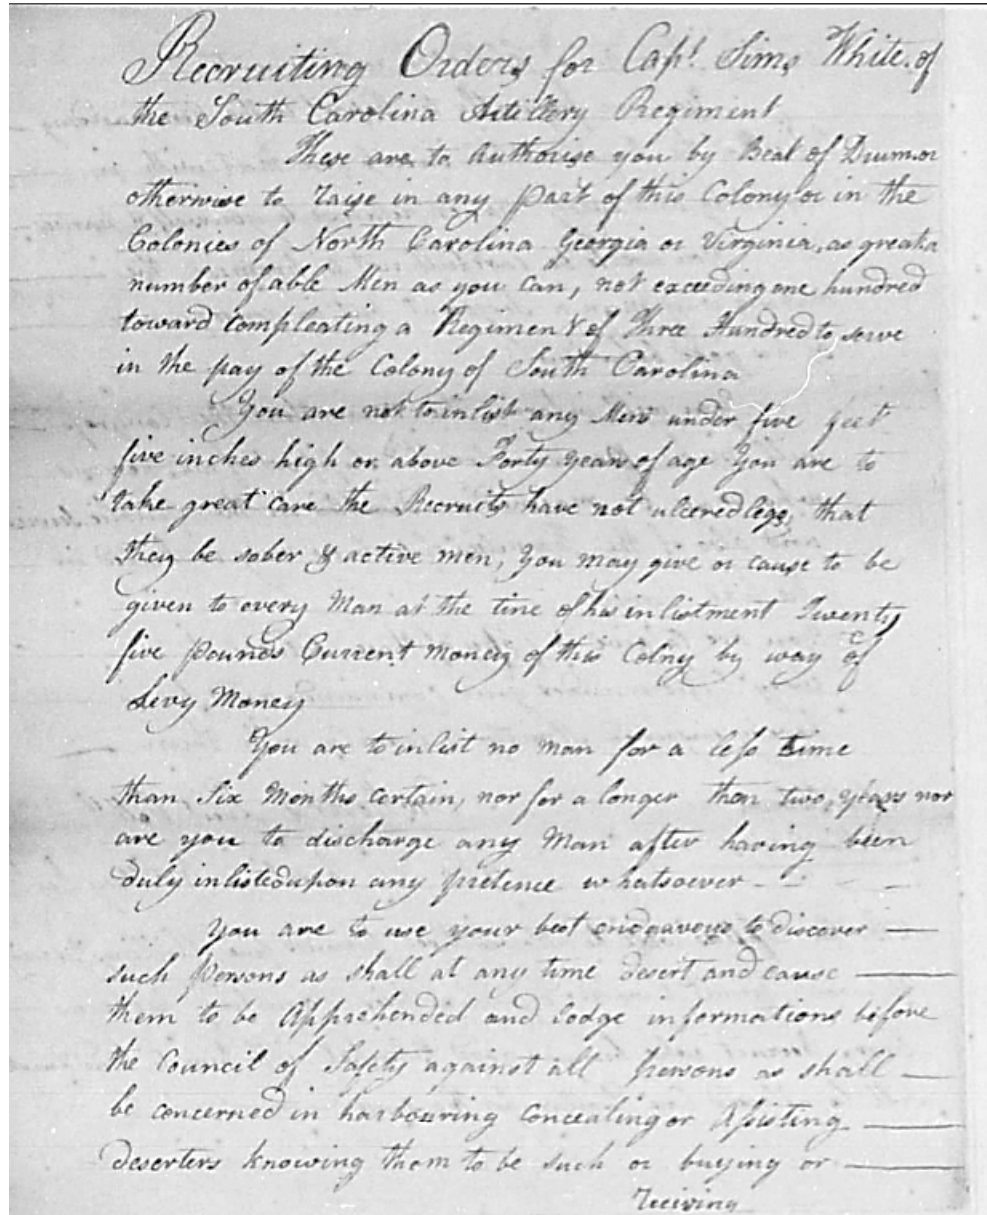 Recruiting Orders for Capt. Sims White of
the South Carolina Artillery Regiment
These are to Authorise you by Beat of Drum or
otherwise to raise in any part of this Colony or in the
Colonies of North Carolina Georgia or Virginia, as great a
number of able Men as you can, not exceeding one hundred
toward compleating a Regiment of Three Hundred to serve
in the pay of the Colony of South Carolina
You are not to inlist any Men under five feet
five inches high or above Forty Years of age You are to
take great care the Recruits have not ulcered legs, that
they be sober & active men, You may give or cause to be
given to every Man at the time of his inlistment Twenty
five pounds Current Money of this Colny by way of
Levy Money
You are to inlist no man for a less time
than Six Months certain, nor for a longer then two, years nor
are you to discharge any Man after having been
duly inlisted upon any pretence whatsoever
You are to use your best endeavous to discover
such persons as shall at any time desert and cause
them to be Apprehended and Lodge informations before
the Council of Safety against all persons as shall
be concerned in harbouring Concealing or Assisting
deserters knowing them to be such or buying or
receiving